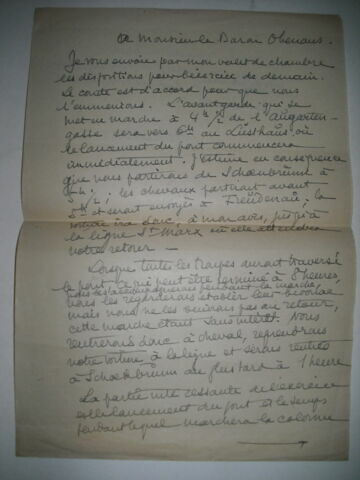 A Monsieur le Baron Obenaus.
Je vous envoie par mon valet de chambre
les dispositions pour l'exercice de demain.
Le comte est d'accord pour que nous
l'emmenions. L'avantgarde qui se
met en marche à 4 h 1/2 de l'Augarten-
gasse sera vers 6 h au Lusthaus où
le lancement du pont commencera
immédiatement. J'estime en conséquence
que nous partirons de Schoenbrunn à
h. ; les chevaux partiront avant
et seront envoyés à Freudenau; la
voiture ira donc, à mon avis, jusqu'à
la ligne St Marx où elle attendra
notre retour —
Lorsque toutes les troupes auront traversé
le pont, ce qui peut être terminé à 8 heures,
nous les accompagnerons pendant la marche,
nous les regarderons établir leur bivouac
mais nous ne les suivrons pas au retour
cette marche étant sans intérêt. Nous
rentrerons donc à cheval, reprendrons
notre voiture à la ligne et serons rentrés
à Schoenbrunn au plus tard à 1 heure
La partie intéressante de l'exercice
est le lancement du pont et le temps
pendant lequel marchera la colonne